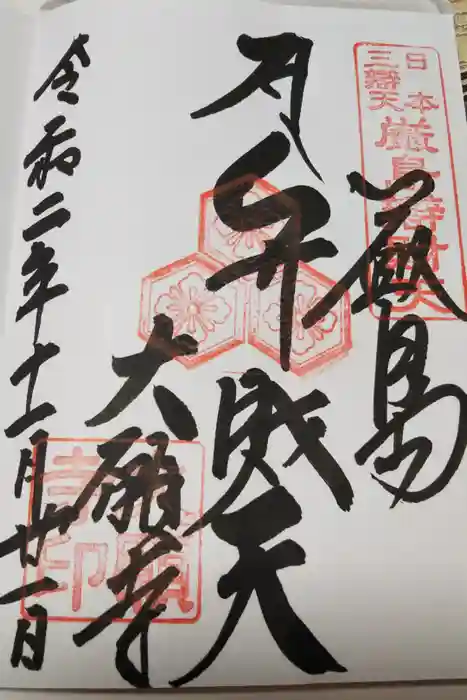 日本
三辯天
厳島辯財天
厳島
弁財天
大願寺
大願寺印
令和二年十一月廿一日